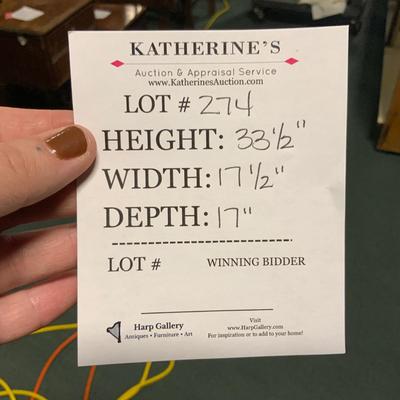 KATHERINE'S
Auction & Appraisal Service
www.KatherinesAuction.com
LOT # 274
HEIGHT: 33 1/2"
WIDTH: 17 1/2"
DEPTH: 17"
LOT # WINNING BIDDER
Harp Gallery
Antiques • Furniture • Art
Visit
www.HarpGallery.com
For inspiration or to add to your home!